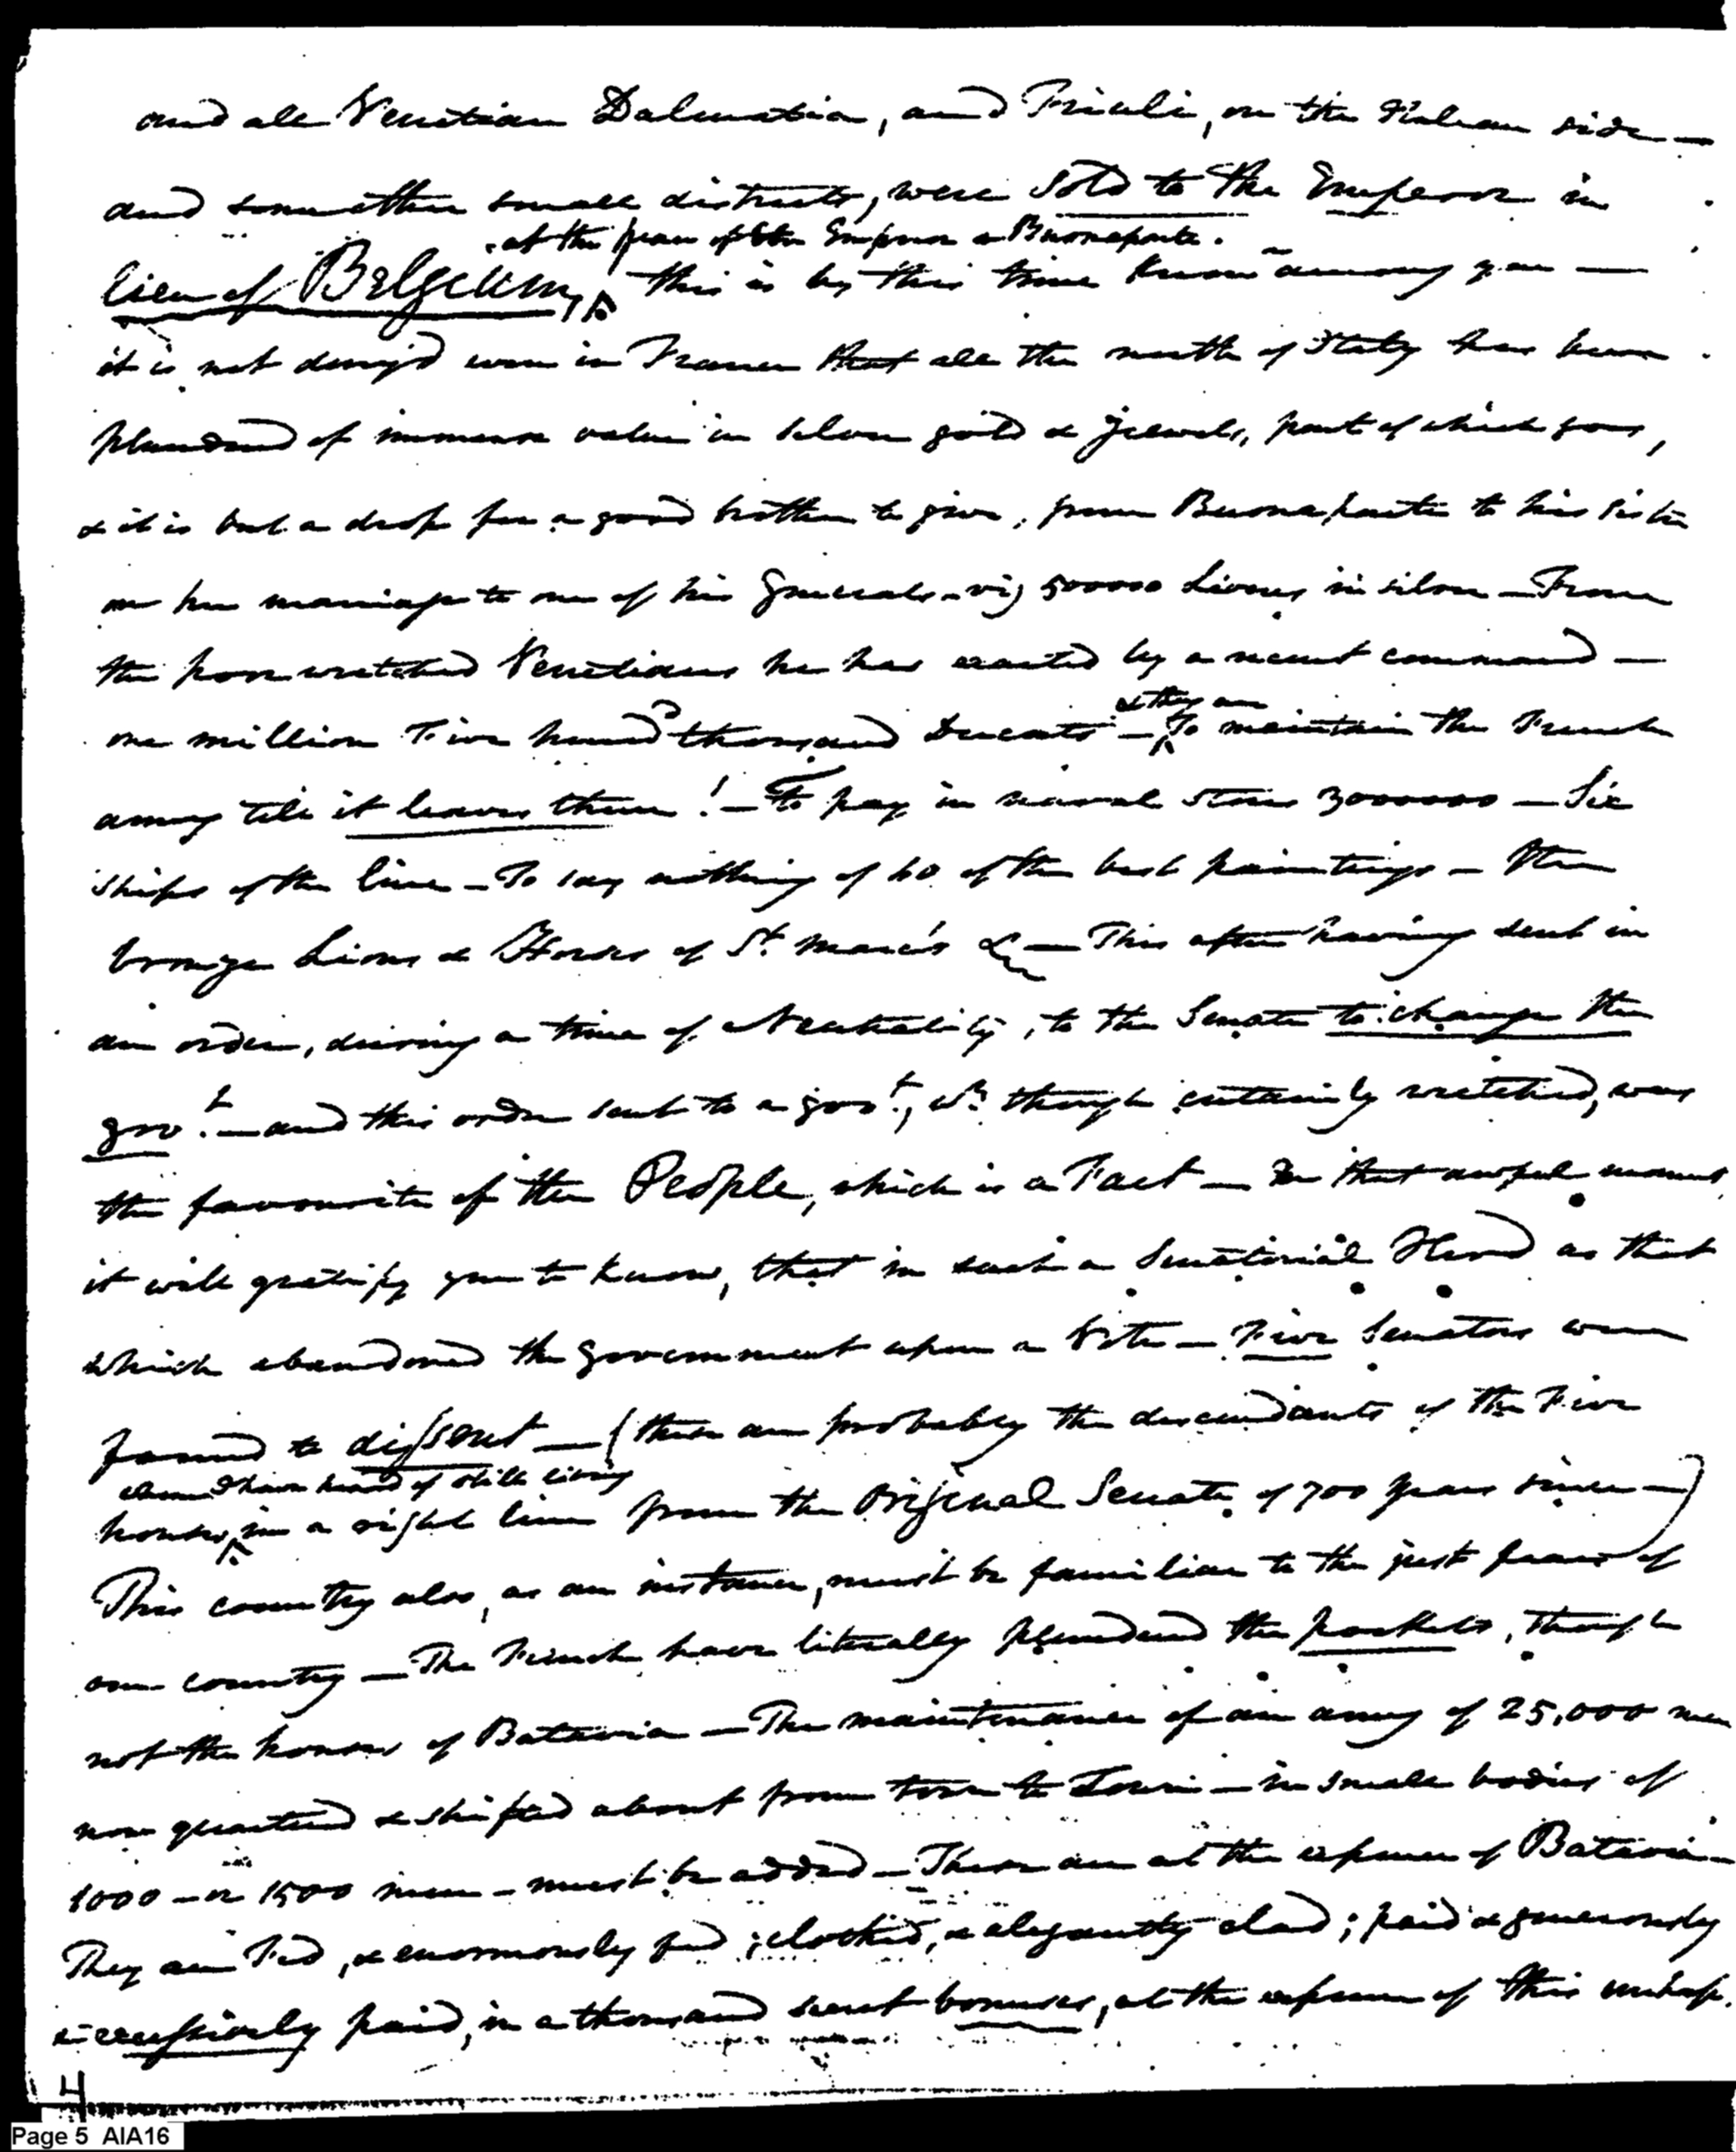 and all Venetian Dalmatia, and Friuli, on the Italian side —
and some other small districts, were sold to the Emperor in
at the peace of the Emperor & Buonaparte.
lieu of Belgium, this is by this time known among you —
it is not deny'd even in France that all the north of Italy has been
plundered of immense value in silver gold & jewels, part of which goes,
& it is but a drop for a good brother to give, from Buonaparte to his sister
on her marriage to one of his Generals - viz 500000 Livres in silver — From
the poor wretched Venetians he has exacted by a recent command —
& they are
one million Five hund thousand Ducats — To maintain the French
army till it leaves them! — To pay in naval stores 3000000 — Six
ships of the line — To say nothing of 60 of the best paintings — the
bronze Lions & Horses of St. Marc's & — This after having sent in
an order, during a time of Neutrality, to the Senate to change the
govt. — and this order sent to a govt., wh. though certainly wretched, was
the favourite of the People, which is a Fact — In that awful moment,
it will gratify you to know, that in such a Senatorial Herd as that
which abandoned the government upon a Vote — Five Senators were
found to dissent — (these are probably the descendants of the Five
whom I have heard of still living
houses, in a right line from the Original Senate of 700 years since —)
This country also, as an instance, must be familiar to the just fears of
our country — The French have literally plundered the pockets, though
not the honor of Batavia — The maintenance of an army of 25,000 men
now quartered & shifted about from town to Town — in small bodies of
1000 — or 1500 men — must be added — These are at the expense of Batavia —
They are Fed, & enormously fed; clothed, & elegantly clad; paid & generously
& excessively paid, in a thousand secret bonuses, at the expense of this unhap.
4
Page 5 AIA16